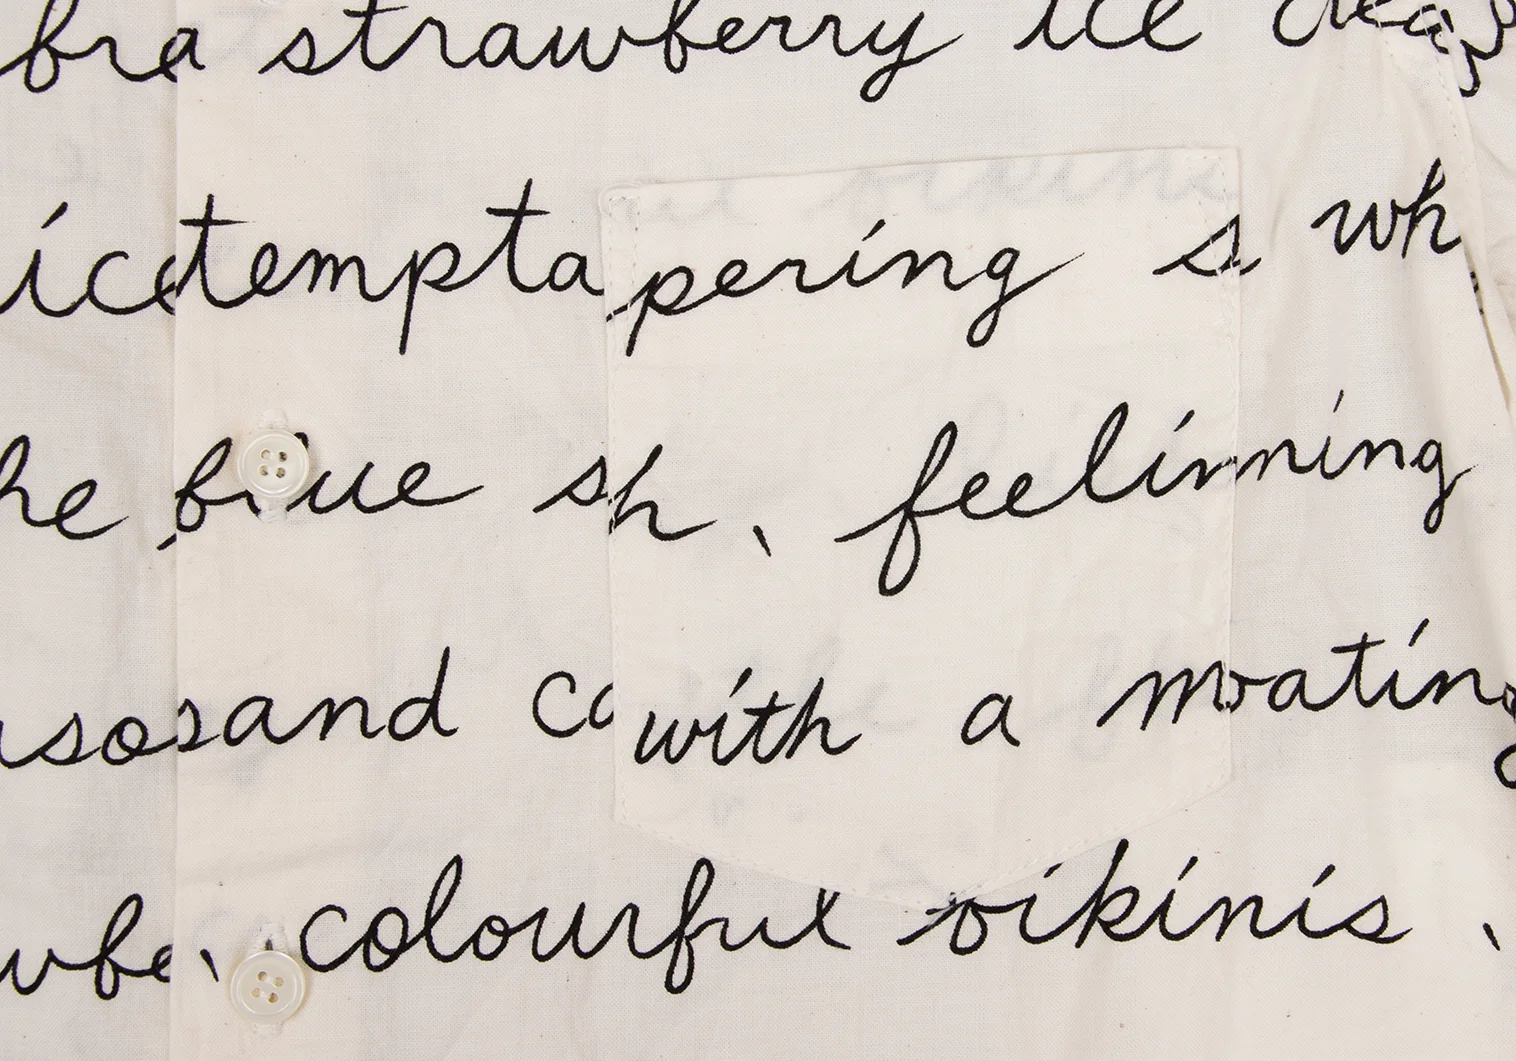 bra strawberry ice crea
ice tempta pering s wh
he blue sh , feelinning
sosand co with a moating
wbe , colourful bikinis ,